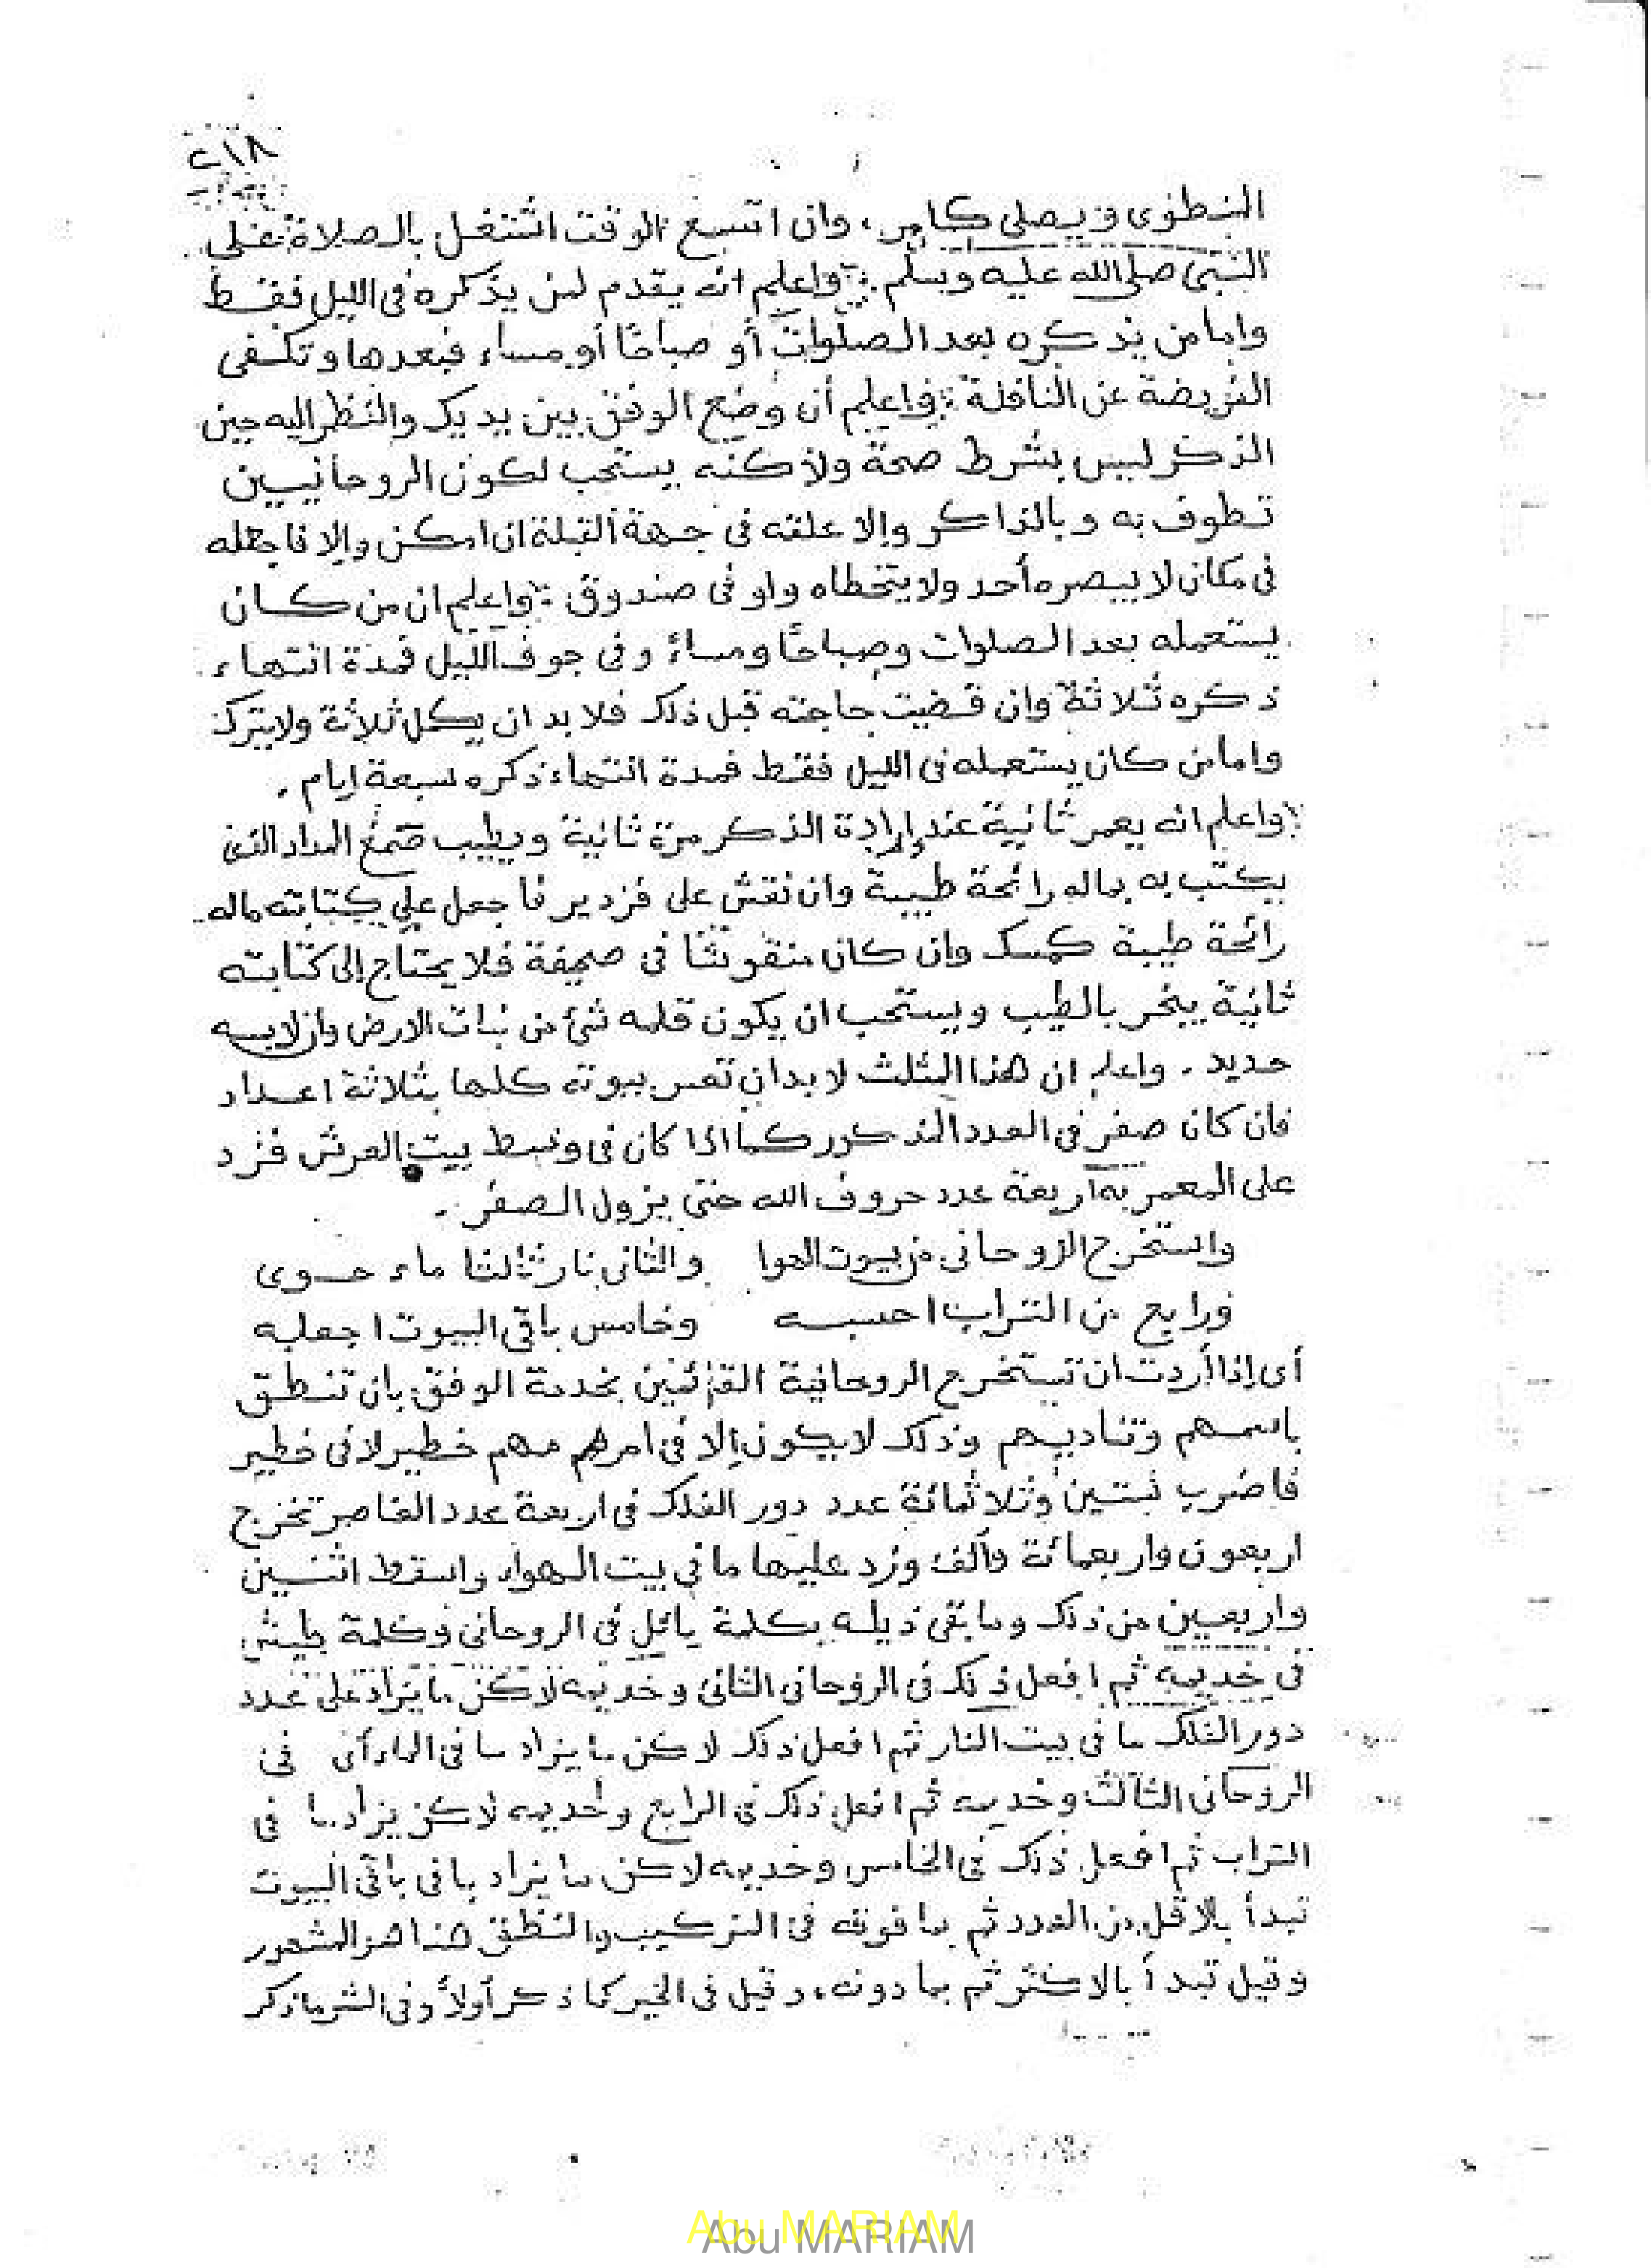 ٢١٨
ويصلي كامر، وان اتسع الوقت اشتغل بالصلاة على
النبي صلى الله عليه وسلم : واعلم انه يقدم لمن يذكره في الليل فقط
واما من يذكره بعد الصلوات أو صباحًا أو مساء فبعدها وتكفى
الفريضة عن النافلة : واعلم أن وضع الوفق بين يديك والنظر اليه حين
الذكر ليس بشرط صحة ولاكنه يستحب لكون الروحانيين
تطوف به وبالذاكر والا علقه في جهة القبلة ان امكن وإلا فاجعله
في مكان لا يبصره أحد ولا يتخطاه ولو في صندوق : واعلم ان من كان
يستعمله بعد الصلوات وصباحًا ومساءً وفي جوف الليل فمدة انتهاء
ذكره ثلاثة وان قضيت حاجته قبل ذلك فلا بد ان يكمل ثلاثة ولا يترك
واما من كان يستعمله في الليل فقط فمدة انتهاء ذكره سبعة ايام .
واعلم انه يعمر ثانية عند إرادة الذكر مرة ثانية ويطيب صمغ المداد الذي
يكتب به بماله رائحة طيبة وان نقش على قزدير فاجعل على كتابته ماله
رائحة طيبة كمسك وان كان منقوشًا في صحيفة فلا يحتاج إلى كتابته
ثانية يبخر بالطيب ويستحب ان يكون قلمه شئ من نبات الارض وان لا يسه
حديد . واعلم ان هذا المثلث لا بد ان تعمر بيوته كلها بثلاثة اعداد
فان كان صفر في العدد المذكور كما اذا كان في وسط بيت العرش فزد
على المعمر به اربعة عدد حروف الله حتى يزول الصفر .
واستخرج الروحاني من بيوت الهوا والثاني نار ثالثا ماء حوى
ورابع من التراب احسبه وخامس باقي البيوت اجعليه
أي إذا أردت ان تستخرج الروحانية القائمين بخدمة الوفق بان تنطق
باسمهم وتناديهم وذلك لا يكون إلا في امر مهم خطير لا في خطير
فاضرب ستين وثلاثمائة عدد دور الفلك في اربعة عدد العناصر تخرج
اربعون واربعمائة وألف وزد عليها ما في بيت الهواء واسقط اثنين
واربعين من ذلك وما بقي ذيله بكلمة يائل في الروحاني وكلمة طيش
في خديمه ثم افعل ذلك في الروحاني الثاني وخديمه لاكن ما يزاد على عدد
دور الفلك ما في بيت النار ثم افعل ذلك لاكن ما يزاد ما في الماء أي في
الروحاني الثالث وخديمه ثم افعل ذلك في الرابع وخديمه لاكن يزاد ما في
التراب ثم افعل ذلك في الخامس وخديمه لاكن ما يزاد ما في باقي البيوت
تبدأ بالاقل من العدد ثم بما فوقه في التركيب والنطق هذا هو المشهور
وقيل تبدأ بالاكثر ثم بما دونه، وقيل في الخير كما ذكر أولاً وفي الشر ما ذكر
Abu MARIAM
Abu MARIAM